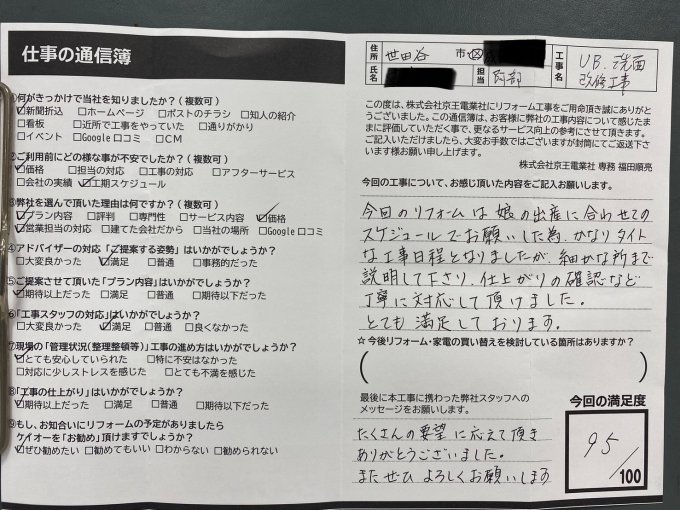 仕事の通信簿
①何がきっかけで当社を知りましたか？(複数可)
☑新聞折込 □ホームページ □ポストのチラシ □知人の紹介
□看板 □近所で工事をやっていた □通りがかり
□イベント □Google口コミ □CM
②ご利用前にどの様な事が不安でしたか？(複数可)
☑価格 □担当の対応 □工事の対応 □アフターサービス
□会社の実績 ☑工期スケジュール
③弊社を選んで頂いた理由は何ですか？(複数可)
☑プラン内容 □評判 □専門性 □サービス内容 ☑価格
☑営業担当の対応 □建てた会社だから □当社の場所 □Google口コミ
④アドバイザーの対応「ご提案する姿勢」はいかがでしょうか？
□大変良かった ☑満足 □普通 □事務的だった
⑤ご提案させて頂いた「プラン内容」はいかがでしょうか？
☑期待以上だった □満足 □普通 □期待以下だった
⑥「工事スタッフの対応」はいかがでしょうか？
□大変良かった ☑満足 □普通 □良くなかった
⑦現場の「管理状況(整理整頓等)」工事の進め方はいかがでしょうか？
☑とても安心していられた □特に不安はなかった
□対応に少しストレスを感じた □とても不満を感じた
⑧「工事の仕上がり」はいかがでしょうか？
☑期待以上だった □満足 □普通 □期待以下だった
⑨もし、お知合いにリフォームの予定がありましたら
ケイオーを「お勧め」頂けますでしょうか？
☑ぜひ勧めたい □勧めてもいい □わからない □勧められない
住所 世田谷 市区
氏名 担当 阿部
工事名 UB、洗面
改修工事
この度は、株式会社京王電業社にリフォーム工事をご用命頂き誠にありがと
うございました。この通信簿は、お客様に弊社の工事内容について感じたま
まに評価していただく事で、更なるサービス向上の参考にさせて頂きます。
ご記入いただけましたら、大変お手数ではございますが封筒にてご返送下さ
います様お願い申し上げます。
株式会社京王電業社 専務 福田順亮
今回の工事について、お感じ頂いた内容をご記入お願いします。
今回のリフォームは娘の出産に合わせての
スケジュールでお願いした為、かなりタイト
な工事日程となりましたが、細かな所まで
説明して下さり、仕上がりの確認など
丁寧に対応して頂けました。
とても満足しております。
☆今後リフォーム・家電の買い替えを検討している箇所はありますか？
最後に本工事に携わった弊社スタッフへの
メッセージをお願いします。
たくさんの要望に応えて頂き
ありがとうございました。
またぜひよろしくお願いします
今回の満足度
95
/100